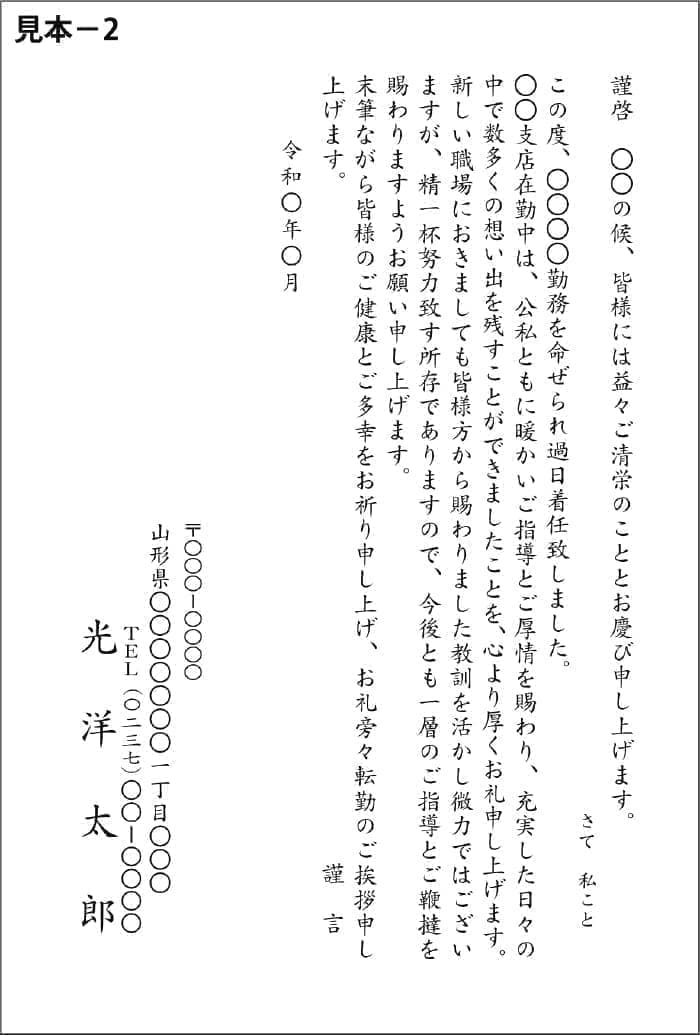 見本－2
謹啓　〇〇の候、皆様には益々ご清栄のこととお慶び申し上げます。
さて　私こと
この度、〇〇〇〇勤務を命ぜられ過日着任致しました。
〇〇支店在勤中は、公私ともに暖かいご指導とご厚情を賜わり、充実した日々の
中で数多くの想い出を残すことができましたことを、心より厚くお礼申し上げます。
新しい職場におきましても皆様方から賜わりました教訓を活かし微力ではござい
ますが、精一杯努力致す所存でありますので、今後とも一層のご指導とご鞭撻を
賜わりますようお願い申し上げます。
末筆ながら皆様のご健康とご多幸をお祈り申し上げ、お礼旁々転勤のご挨拶申し
上げます。　謹　言
令和〇年〇月
〒〇〇〇－〇〇〇〇
山形県〇〇〇〇〇〇〇一丁目〇〇〇
TEL（〇二三七）〇〇－〇〇〇〇
光　洋　太　郎